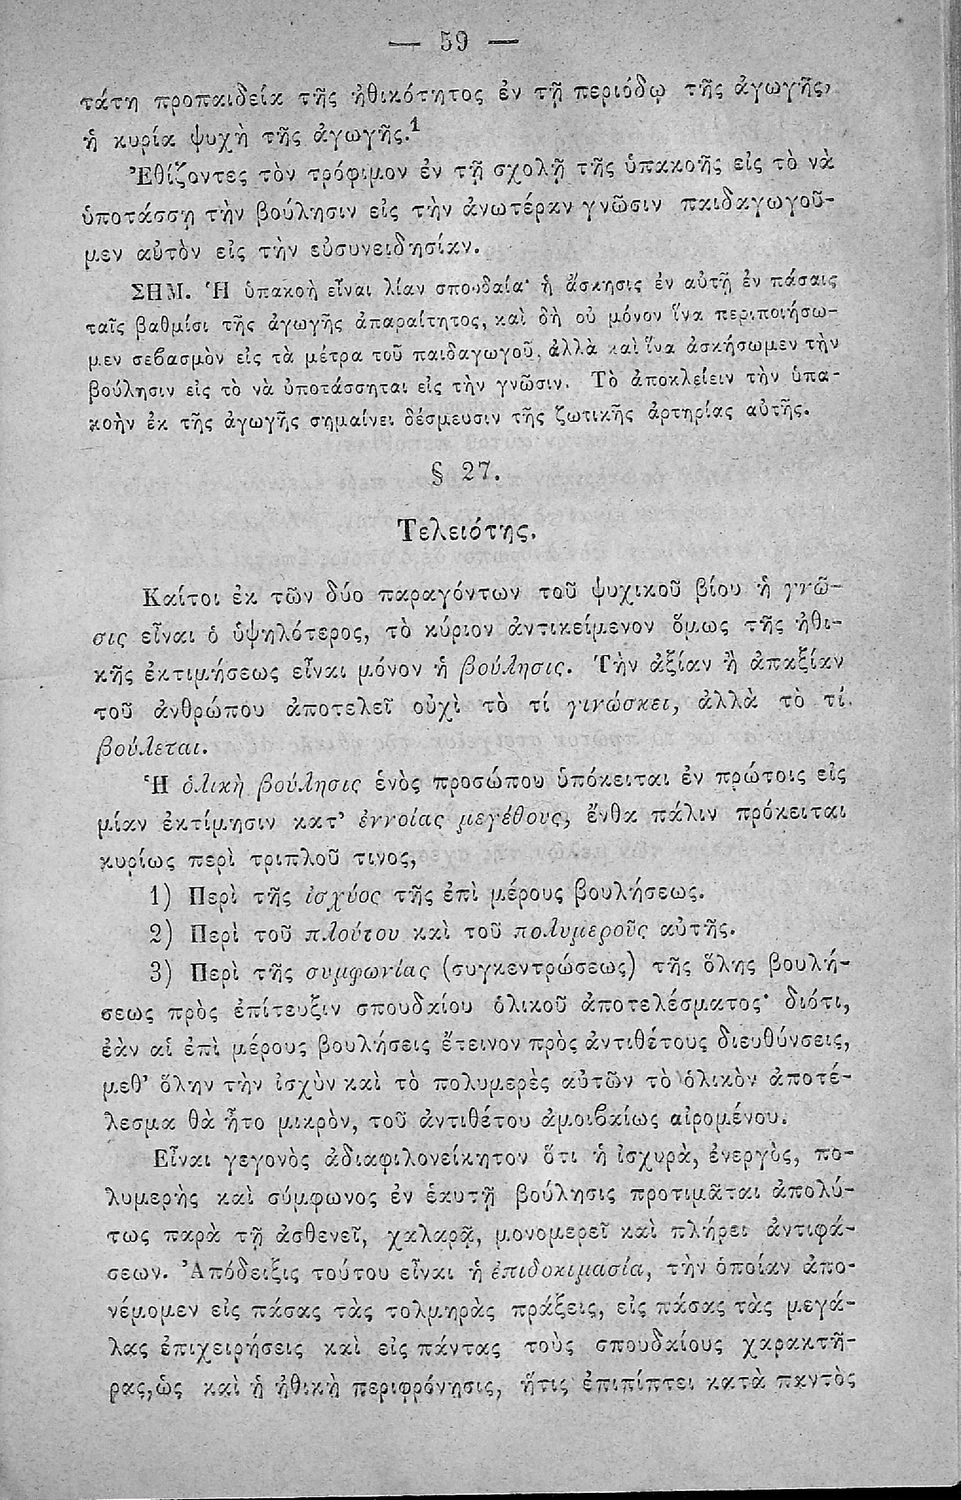 — 59 —
τάτη προπαιδεία τῆς ἠθικότητος ἐν τῇ περιόδῳ τῆς ἀγωγῆς,
ἡ κυρία ψυχὴ τῆς ἀγωγῆς.¹
Ἐθίζοντες τὸν τρόφιμον ἐν τῇ σχολῇ τῆς ὑπακοῆς εἰς τὸ νὰ
ὑποτάσσῃ τὴν βούλησιν εἰς τὴν ἀνωτέραν γνῶσιν παιδαγωγοῦ-
μεν αὐτὸν εἰς τὴν εὐσυνειδησίαν.
ΣΗΜ. Ἡ ὑπακοὴ εἶναι λίαν σπουδαία· ἡ ἄσκησις ἐν αὐτῇ ἐν πάσαις
ταῖς βαθμίσι τῆς ἀγωγῆς ἀπαραίτητος, καὶ δὴ οὐ μόνον ἵνα περιποιήσω-
μεν σεβασμὸν εἰς τὰ μέτρα τοῦ παιδαγωγοῦ, ἀλλὰ καὶ ἵνα ἀσκήσωμεν τὴν
βούλησιν εἰς τὸ νὰ ὑποτάσσηται εἰς τὴν γνῶσιν. Τὸ ἀποκλείειν τὴν ὑπα-
κοὴν ἐκ τῆς ἀγωγῆς σημαίνει δέσμευσιν τῆς ζωτικῆς ἀρτηρίας αὐτῆς.
§ 27.
Τελειότης.
Καίτοι ἐκ τῶν δύο παραγόντων τοῦ ψυχικοῦ βίου ἡ γνῶ-
σις εἶναι ὁ ὑψηλότερος, τὸ κύριον ἀντικείμενον ὅμως τῆς ἠθι-
κῆς ἐκτιμήσεως εἶναι μόνον ἡ βούλησις. Τὴν ἀξίαν ἢ ἀπαξίαν
τοῦ ἀνθρώπου ἀποτελεῖ οὐχὶ τὸ τί γινώσκει, ἀλλὰ τὸ τί
βούλεται.
Ἡ ὁλικὴ βούλησις ἑνὸς προσώπου ὑπόκειται ἐν πρώτοις εἰς
μίαν ἐκτίμησιν κατ' ἐννοίας μεγέθους, ἔνθα πάλιν πρόκειται
κυρίως περὶ τριπλοῦ τινος,
1) Περὶ τῆς ἰσχύος τῆς ἐπὶ μέρους βουλήσεως.
2) Περὶ τοῦ πλούτου καὶ τοῦ πολυμεροῦς αὐτῆς.
3) Περὶ τῆς συμφωνίας (συγκεντρώσεως) τῆς ὅλης βουλή-
σεως πρὸς ἐπίτευξιν σπουδαίου ὁλικοῦ ἀποτελέσματος· διότι,
ἐὰν αἱ ἐπὶ μέρους βουλήσεις ἔτεινον πρὸς ἀντιθέτους διευθύνσεις,
μεθ' ὅλην τὴν ἰσχὺν καὶ τὸ πολυμερὲς αὐτῶν τὸ ὁλικὸν ἀποτέ-
λεσμα θὰ ἦτο μικρὸν, τοῦ ἀντιθέτου ἀμοιβαίως αἰρομένου.
Εἶναι γεγονὸς ἀδιαφιλονείκητον ὅτι ἡ ἰσχυρὰ, ἐνεργὸς, πο-
λυμερὴς καὶ σύμφωνος ἐν ἑαυτῇ βούλησις προτιμᾶται ἀπολύ-
τως παρὰ τῇ ἀσθενεῖ, χαλαρᾷ, μονομερεῖ καὶ πλήρει ἀντιφά-
σεων. Ἀπόδειξις τούτου εἶναι ἡ ἐπιδοκιμασία, τὴν ὁποίαν ἀπο-
νέμομεν εἰς πάσας τὰς τολμηρὰς πράξεις, εἰς πάσας τὰς μεγά-
λας ἐπιχειρήσεις καὶ εἰς πάντας τοὺς σπουδαίους χαρακτῆ-
ρας, ὡς καὶ ἡ ἠθικὴ περιφρόνησις, ἥτις ἐπιπίπτει κατὰ παντὸς